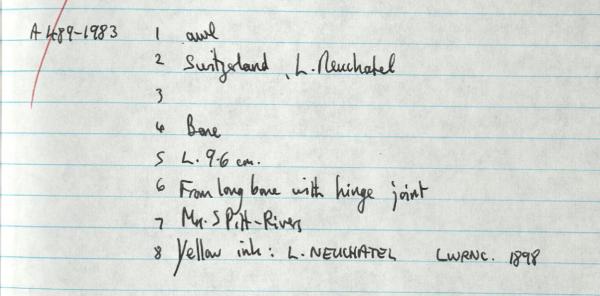 A489-1983 1 awl
2 Switzerland, L. Neuchatel
3
4 Bone
5 L. 9.6 cm.
6 From long bone with hinge joint
7 Mr. S Pitt-Rivers
8 Yellow ink: L. NEUCHATEL LWRNC. 1898